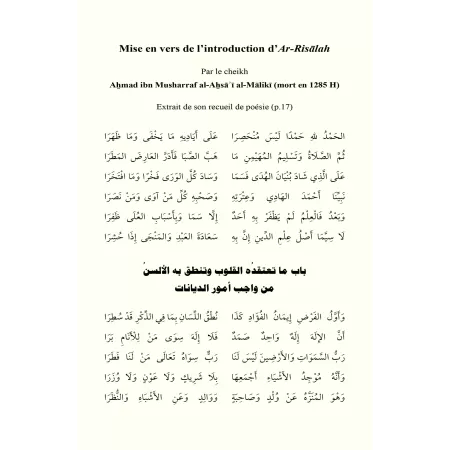 Mise en vers de l'introduction d'Ar-Risālah
Par le cheikh
Aḥmad ibn Musharraf al-Aḥsā'ī al-Mālikī (mort en 1285 H)
Extrait de son recueil de poésie (p.17)
الحَمْدُ للهِ حَمْدًا لَيْسَ مُنْحَصِرَا عَلَى أَيَادِيهِ مَا يَخْفَى وَمَا ظَهَرَا
ثُمَّ الصَّلَاةُ وَتَسْلِيمُ المُهَيْمِنِ مَا هَبَّ الصَّبَا فَأَدَرَّ العَارِضُ المَطَرَا
عَلَى الَّذِي شَادَ بُنْيَانَ الهُدَى فَسَمَا وَسَادَ كُلَّ الوَرَى فَخْرًا وَمَا افْتَخَرَا
نَبِيِّنَا أَحْمَدَ الهَادِي وَعِتْرَتِهِ وَصَحْبِهِ كُلِّ مَنْ آوَى وَمَنْ نَصَرَا
وَبَعْدُ فَالعِلْمُ لَمْ يَظْفَرْ بِهِ أَحَدٌ إِلَّا سَمَا وَبِأَسْبَابِ العُلَى ظَفِرَا
لَا سِيَّمَا أَصْلُ عِلْمِ الدِّينِ إِنَّ بِهِ سَعَادَةَ العَبْدِ وَالمَنْجَى إِذَا حُشِرَا
باب ما تعتقدُه القلوب وتنطق به الألسنُ
من واجب أمور الديانات
وَأَوَّلُ الفَرْضِ إِيمَانُ الفُؤَادِ كَذَا نُطْقُ اللِّسَانِ بِمَا فِي الذِّكْرِ قَدْ سُطِرَا
أَنَّ الإِلَهَ إِلَهٌ وَاحِدٌ صَمَدٌ فَلَا إِلَهَ سِوَى مَنْ لِلْأَنَامِ بَرَا
رَبُّ السَّمَوَاتِ وَالأَرْضِينَ لَيْسَ لَنَا رَبٌّ سِوَاهُ تَعَالَى مَنْ لَنَا فَطَرَا
وَأَنَّهُ مُوجِدُ الأَشْيَاءِ أَجْمَعِهَا بِلَا شَرِيكٍ وَلَا عَوْنٍ وَلَا وُزَرَا
وَهوَ المُنَزَّهُ عَنْ وُلْدٍ وَصَاحِبَةٍ وَوَالِدٍ وَعَنِ الأَشْبَاهِ وَالنُّظَرَا